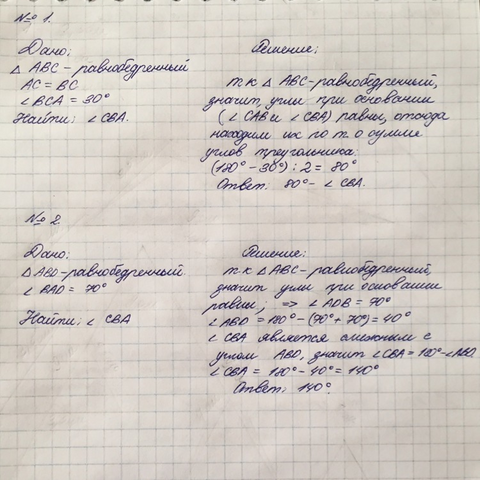 № 1.
Дано:
△ ABC - равнобедренный
AC = BC
∠ BCA = 30°
Найти: ∠ CBA.
Решение:
т.к △ ABC-равнобедренный,
значит углы при основании
(∠ CAB и ∠ CBA) равны, отсюда
находим их по т. о сумме
углов треугольника:
(180° - 30°) : 2 = 80°
Ответ: 80° - ∠ CBA.
№ 2
Дано:
△ABD-равнобедренный.
∠ BAD = 70°
Найти: ∠ CBA
Решение:
т.к △ ABC-равнобедренный,
значит угли при основании
равны; => ∠ ADB = 70°
∠ ABD = 180° - (70° + 70°) = 40°
∠ CBA является смежным с
углом ABD, значит ∠CBA = 180°-∠ABD.
∠ CBA = 180° - 40° = 140°
Ответ: 140°.